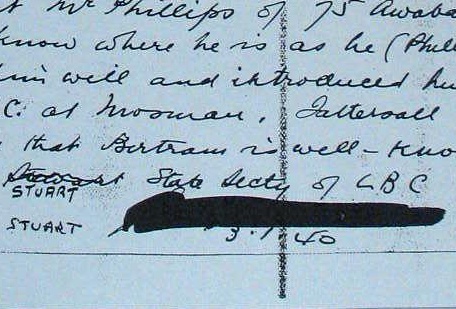 Mr Phillips of 75 Awaba
know where he is as he (Phil
him will and introduced hi
C. at Mosman, Tattersall
that Bertram is well-kno
Stewart State Secty of LBC
STUART
STUART 3.1.40